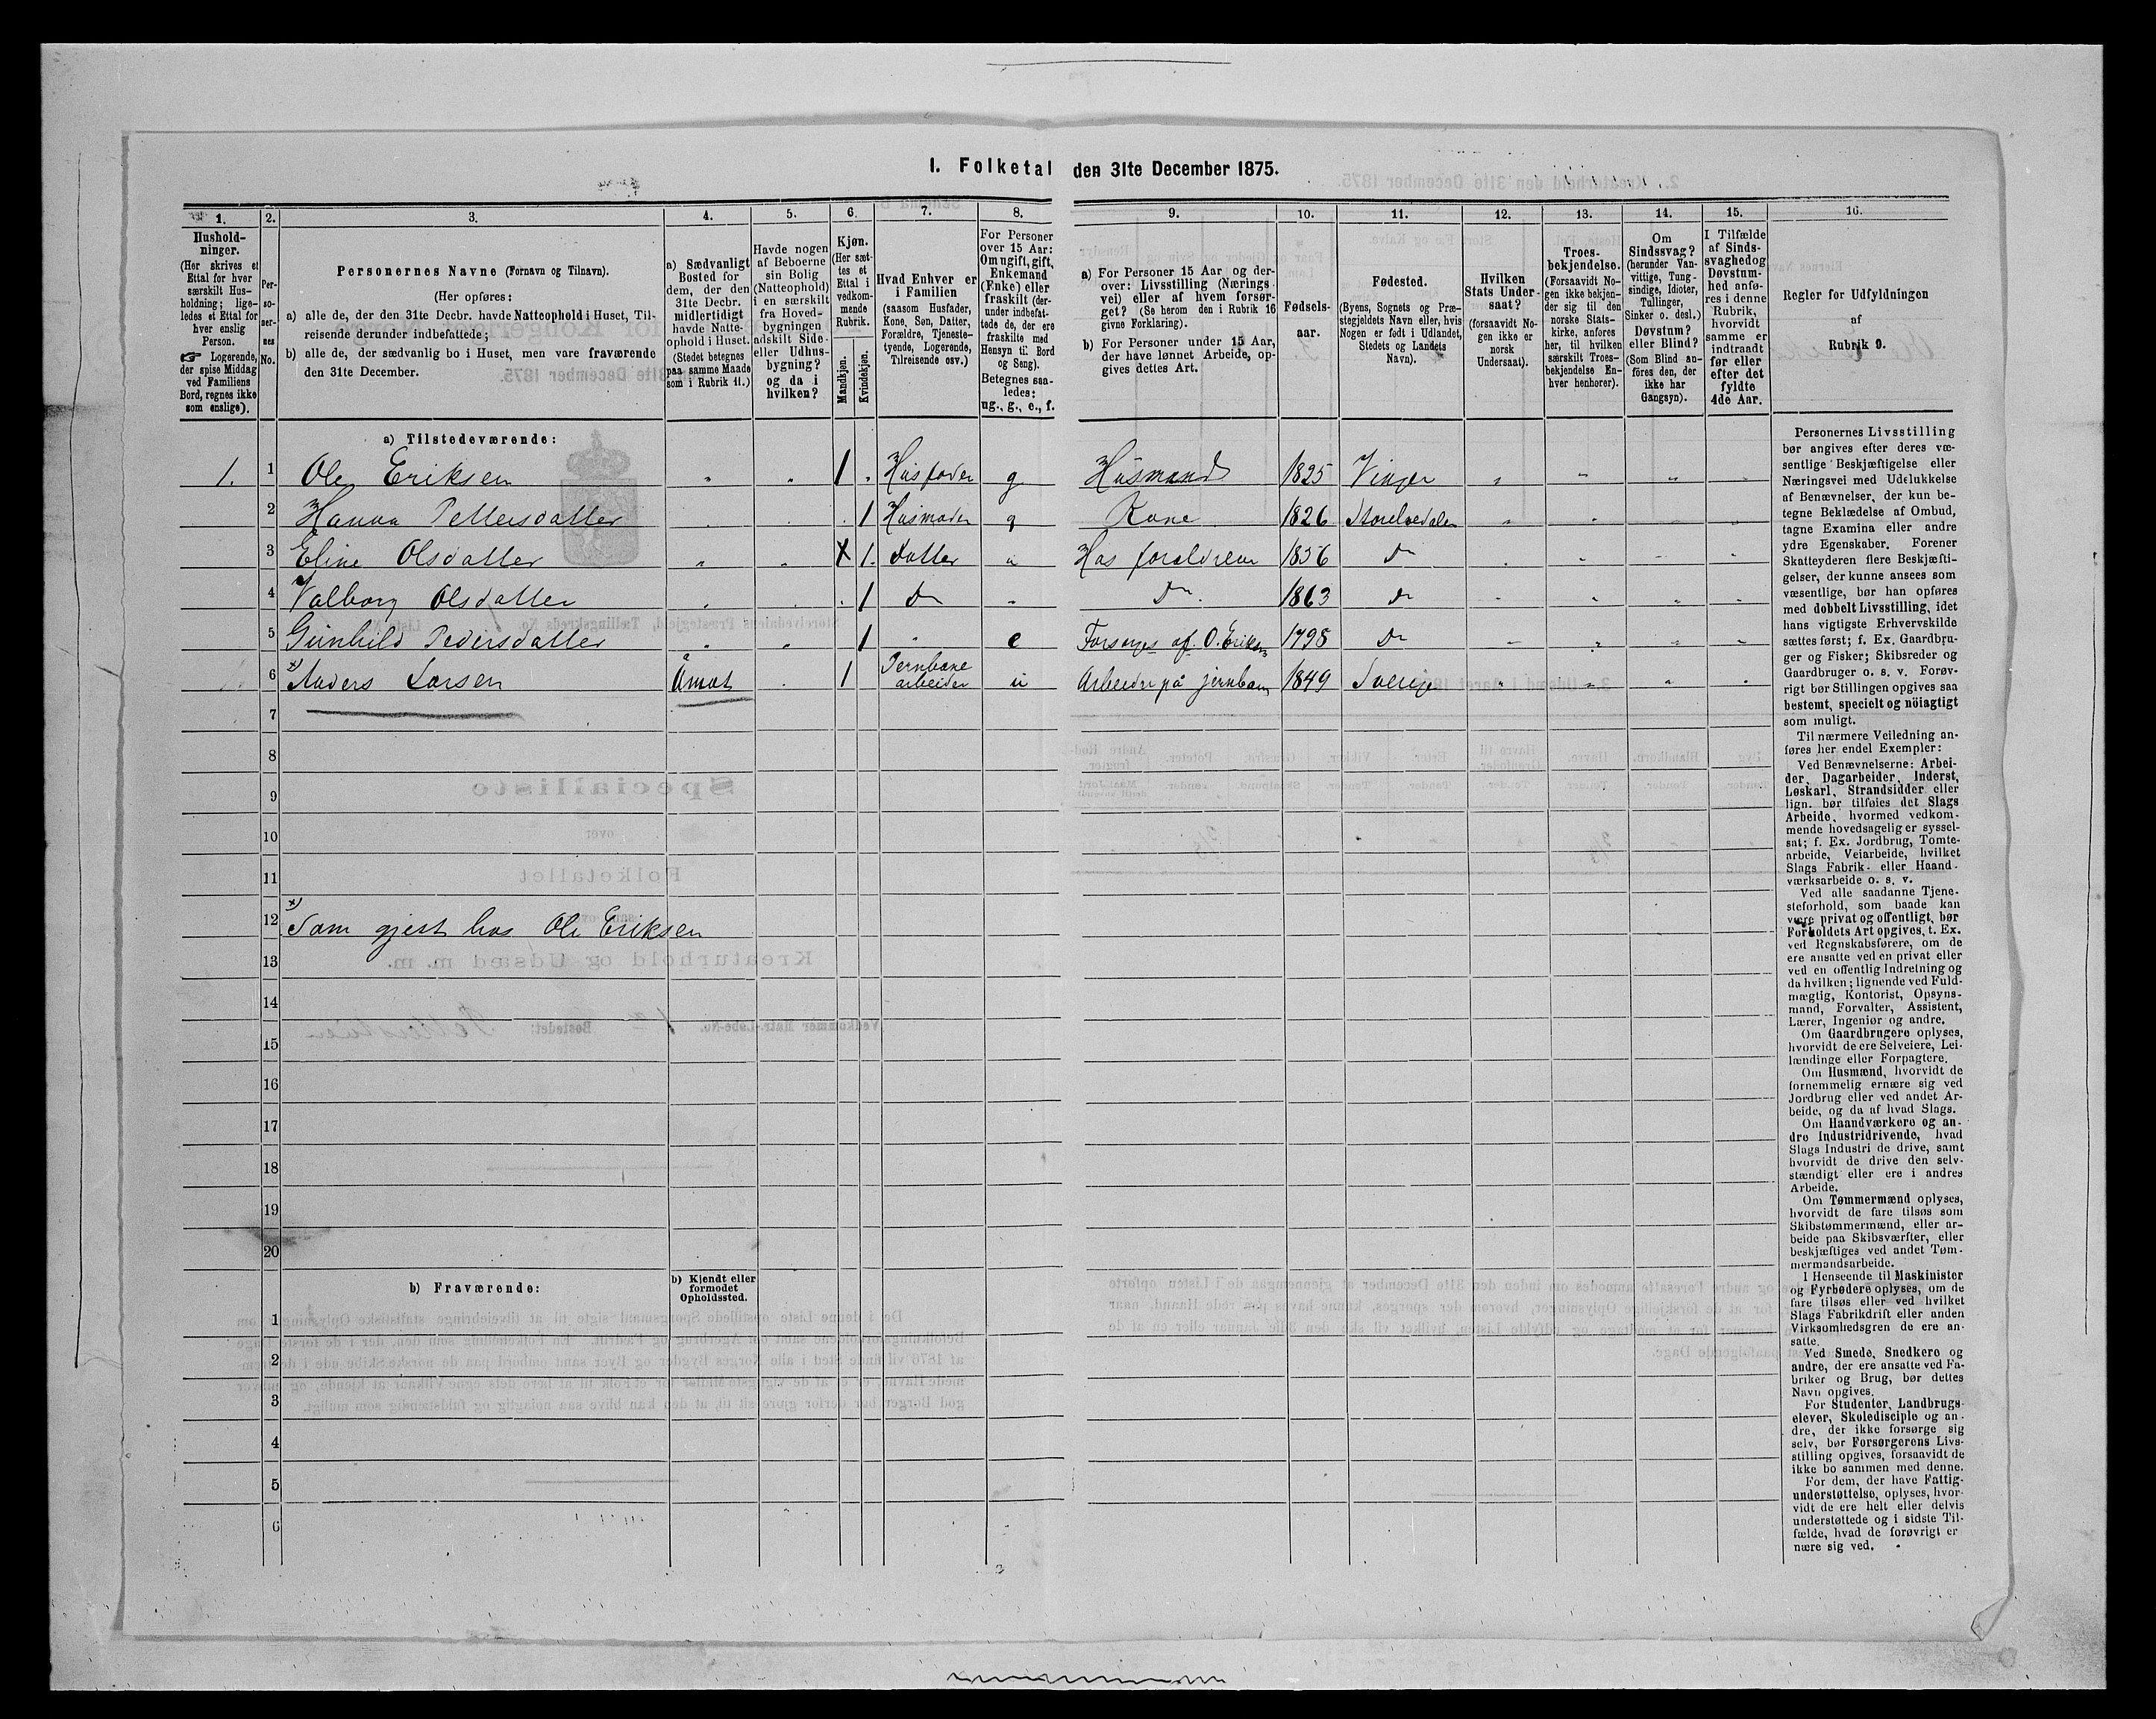 I. Folketal den 31te December 1875.
1. 2. 3. 4. 5. 6. 7. 8. 9. 10. 11. 12. 13. 14. 15. 16.
Hushold-
ninger.
(Her skrives et
Ettal for hver
særskilt Hus-
holdning; lige-
ledes et Ettal for
hver enslig
Person.
☞ Logerende,
der spise Middag
ved Familiens
Bord, regnes ikke
som enslige).
Per-
so-
ner-
nes
No.
Personernes Navne (Fornavn og Tilnavn).
(Her opføres:
a) alle de, der den 31te Decbr. havde Natteophold i Huset, Til-
reisende derunder indbefattede;
b) alle de, der sædvanlig bo i Huset, men vare fraværende
den 31te December.
a) Sædvanligt
Bosted for
dem, der den
31te Decbr.
midlertidigt
havde Natte-
ophold i Huset.
(Stedet betegnes
paa samme Maade
som i Rubrik 11.)
Havde nogen
af Beboerne
sin Bolig
(Natteophold)
i en særskilt
fra Hoved-
bygningen
adskilt Side-
eller Udhus-
bygning?
og da i
hvilken?
Kjøn.
(Her sæt-
tes et
Ettal i
vedkom-
mende
Rubrik.
Mandkjøn.
Kvindekjøn.
Hvad Enhver er
i Familien
(saasom Husfader,
Kone, Søn, Datter,
Forældre, Tjeneste-
tyende, Logerende,
Tilreisende osv.)
For Personer
over 15 Aar:
Om ugift, gift,
Enkemand
(Enke) eller
fraskilt (der-
under indbefat-
tede de, der ere
fraskilte med
Hensyn til Bord
og Seng).
Betegnes saa-
ledes:
ug., g., e., f.
a) For Personer 15 Aar og der-
over: Livsstilling (Nærings-
vei) eller af hvem forsør-
get? (Se herom den i Rubrik 16
givne Forklaring).
b) For Personer under 15 Aar,
der have lønnet Arbeide, op-
gives dettes Art.
Fødsels-
aar.
Fødested.
(Byens, Sognets og Præ-
stegjeldets Navn eller, hvis
Nogen er født i Udlandet,
Stedets og Landets
Navn).
Hvilken
Stats Under-
saat?
(forsaavidt No-
gen ikke er
norsk
Undersaat).
Troes-
bekjendelse.
(Forsaavidt No-
gen ikke bekjen-
der sig til den
norske Stats-
kirke, anføres
her, til hvilken
særskilt Troes-
bekjendelse En-
hver henhører).
Om
Sindssvag?
(herunder Van-
vittige, Tung-
sindige, Idioter,
Tullinger,
Sinker o. desl.)
Døvstum?
eller Blind?
(Som Blind an-
føres den, der
ikke har
Gangsyn).
I Tilfælde
af Sinds-
svaghed og
Døvstum-
hed anfø-
res i denne
Rubrik,
hvorvidt
samme er
indtraadt
før eller
efter det
fyldte
4de Aar.
Regler for Udfyldningen
af
Rubrik 9.
a) Tilstedeværende:
1. 1 Ole Eriksen " " 1 . Husfader g Husmand 1825 Vinger " " " "
2 Hanna Pettersdatter . . . 1 Husmoder g Kone 1826 Storelvedalen " " " "
3 Eline Olsdatter " " X 1. Datter u Hos foraldrene 1856 Do . " " "
4 Valborg Olsdatter . . . 1 Do " Do. 1863 Do " " " "
5 Gunhild Pedersdatter " " 1 " e Forsørges af O. Eriksen 1798 Do " " " "
6 x) Anders Larsen Åmot . 1 Jernbane arbeider u Arbeider på jernbanen 1849 Sverige " " " "
7
8
9
10
11
12 x) Som gjest hos Ole Eriksen
13
14
15
16
17
18
19
20
b) Fraværende:
b) Kjendt eller
formodet
Opholdssted.
1
2
3
4
5
6
Personernes Livsstilling
bør angives efter deres væ-
sentlige Beskjæftigelse eller
Næringsvei med Udelukkelse
af Benævnelser, der kun be-
tegne Beklædelse af Ombud,
tagne Examina eller andre
ydre Egenskaber. Forener
Skatteyderen flere Beskjæfti-
gelser, der kunne ansees som
væsentlige, bør han opføres
med dobbelt Livsstilling, idet
hans vigtigste Erhvervskilde
sættes først; f. Ex. Gaardbru-
ger og Fisker; Skibsreder og
Gaardbruger o. s. v. Forøv-
rigt bør Stillingen opgives saa
bestemt, specielt og nöiagtigt
som muligt.
Til nærmere Veiledning an-
føres her endel Exempler:
Ved Benævnelserne: Arbei-
der, Dagarbeider, Inderst,
Løskarl, Strandsidder eller
lign. bør tilføies det Slags
Arbeide, hvormed vedkom-
mende hovedsagelig er syssel-
sat; f. Ex. Jordbrug, Tomte-
arbeide, Veiarbeide, hvilket
Slags Fabrik- eller Haand-
værksarbeide o. s. v.
Ved alle saadanne Tjene-
steforhold, som baade kan
være privat og offentligt, bør
Forholdets Art opgives, t. Ex.
ved Regnskabsførere, om de
ere ansatte ved en privat eller
ved en offentlig Indretning og
da hvilken; lignende ved Fuld-
mægtig, Kontorist, Opsyns-
mand, Forvalter, Assistent,
Lærer, Ingeniør og andre.
Om Gaardbrugere oplyses,
hvorvidt de ere Selveiere, Lei-
lændinge eller Forpagtere.
Om Husmænd, hvorvidt de
fornemmelig ernære sig ved
Jordbrug eller ved andet Ar-
beide, og da af hvad Slags.
Om Haandværkere og an-
dre Industridrivende, hvad
Slags Industri de drive, samt
hvorvidt de drive den selv-
stændigt eller ere i andres
Arbeide.
Om Tømmermænd oplyses,
hvorvidt de fare tilsøs som
Skibstømmermænd, eller ar-
beide paa Skibsværfter, eller
beskjæftiges ved andet Tøm-
mermandsarbeide.
I Henseende til Maskinister
og Fyrbødere oplyses, om de
fare tilsøs eller ved hvilket
Slags Fabrikdrift eller anden
Virksomhedsgren de ere an-
satte.
Ved Smede, Snedkere og
andre, der ere ansatte ved Fa-
briker og Brug, bør dettes
Navn opgives.
For Studenter, Landbrugs-
elever, Skoledisciple og an-
dre, der ikke forsørge sig
selv, bør Forsørgerens Livs-
stilling opgives, forsaavidt de
ikke bo sammen med denne.
For dem, der have Fattig-
understøttelse, oplyses, hvor-
vidt de ere helt eller delvis
understøttede og i sidste Til-
fælde, hvad de forøvrigt er
nære sig ved.